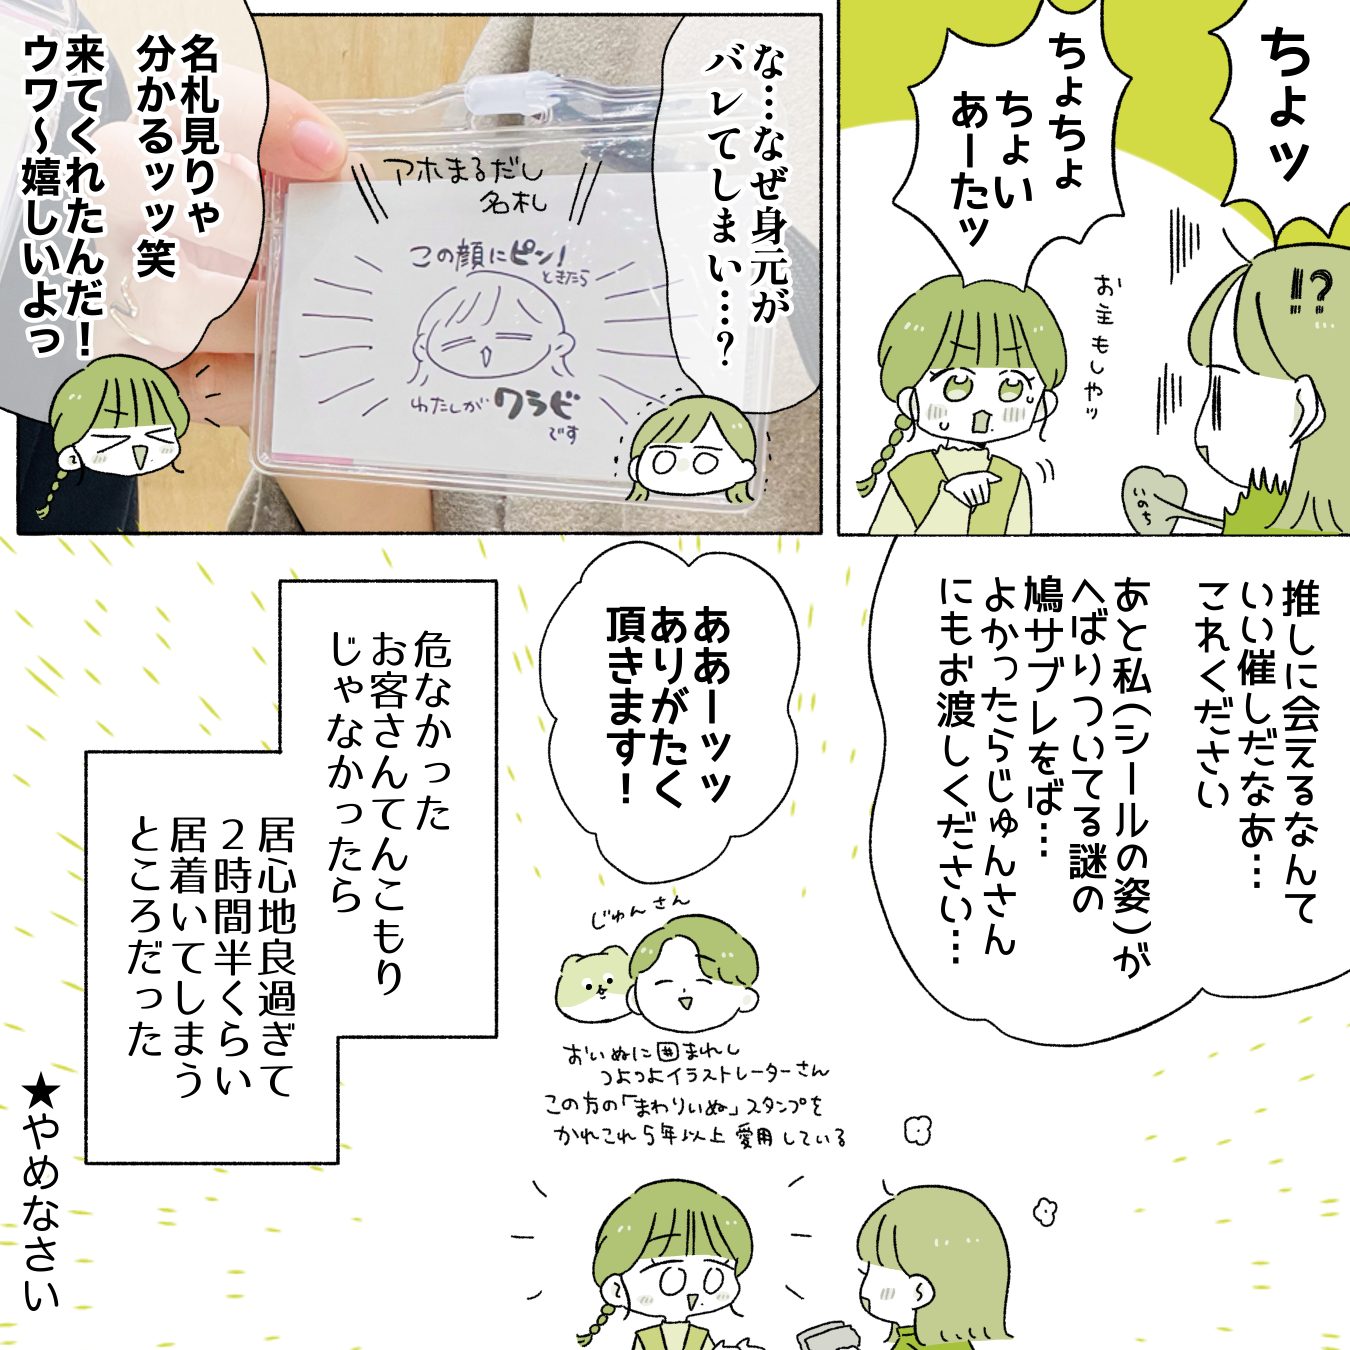 ちょッ
ちょちょ
ちょい
あーたッ
お主もしやッ
!?
いのち
な…なぜ身元が
バレてしまい…?
アホまるだし
名札
この顔にピン!
ときたら
わたしが ワラビ
です
名札見りゃ
分かるッッ笑
来てくれたんだ!
ウワ〜嬉しいよっ
推しに会えるなんて
いい催しだなあ…
これください
あと私(シールの姿)が
へばりついてる謎の
鳩サブレをば…
よかったらじゅんさん
にもお渡しください…
ああーッッ
ありがたく
頂きます!
じゅんさん
おいぬに囲まれし
つよつよイラストレーターさん
この方の「まわりいぬ」スタンプを
かれこれ5年以上 愛用している
危なかった
お客さんてんこもり
じゃなかったら
居心地良過ぎて
2時間半くらい
居着いてしまう
ところだった
★やめなさい